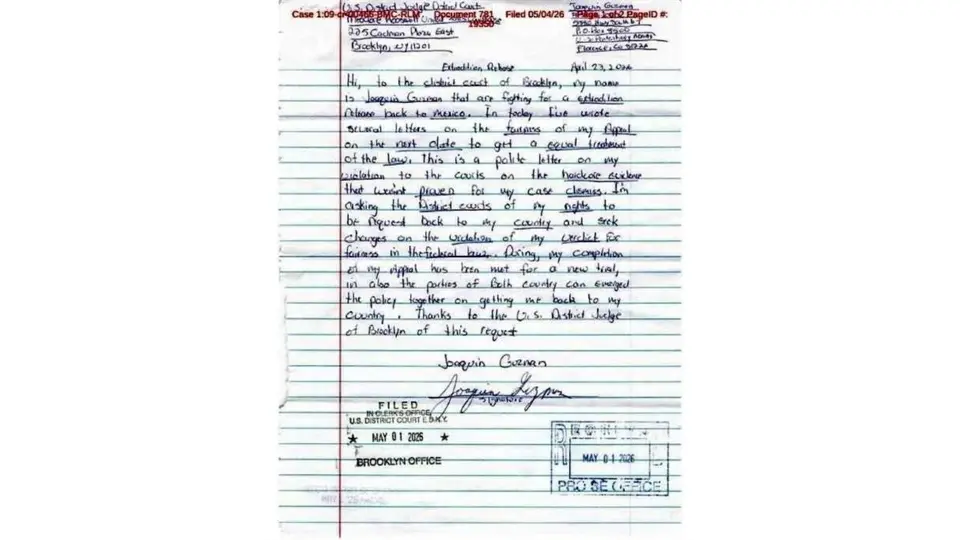 Case 1:09-cr-00466-BMC-RLM Document 781 Filed 05/04/26 Page 1 of 2 PageID #:
19350
U.S. District Judge District Court
225 Cadman Plaza East
Brooklyn, NY 11201
Joaquin Guzman
P.O. Box 8500
Florence, CO 81226
Extradition Release
April 23, 2026
Hi, to the district court of Brooklyn, my name
is Joaquin Guzman that are fighting for a extradition
release back to mexico. In today I've wrote
several letters on the fairness of my Appeal
on the next date to get a equal treatment
of the law. This is a polite letter on my
violation to the courts on the hardcore evidence
that wasn't proven for my case dismiss. I'm
asking the District courts of my rights to
be request back to my country and seek
changes on the violation of my verdict for
fairness in the federal law. Doing, my completion
of my Appeal has been met for a new trial,
in also the parties of Both country can emerged
the policy together on getting me back to my
country. Thanks to the U.S. District Judge
of Brooklyn of this request
Joaquin Guzman
Joaquin Guzman
signature
FILED
IN CLERK'S OFFICE
U.S. DISTRICT COURT E.D.N.Y.
★ MAY 01 2026 ★
BROOKLYN OFFICE
MAY 01 2026
PRO SE OFFICE